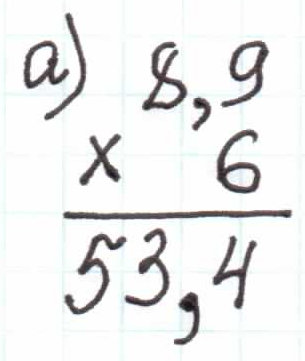 а) 8,9
× 6
53,4